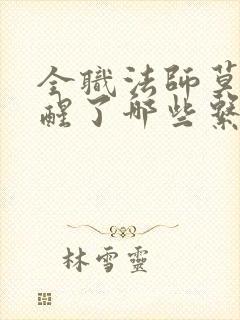 全職法師莫
醒了那些繫
林雪靈